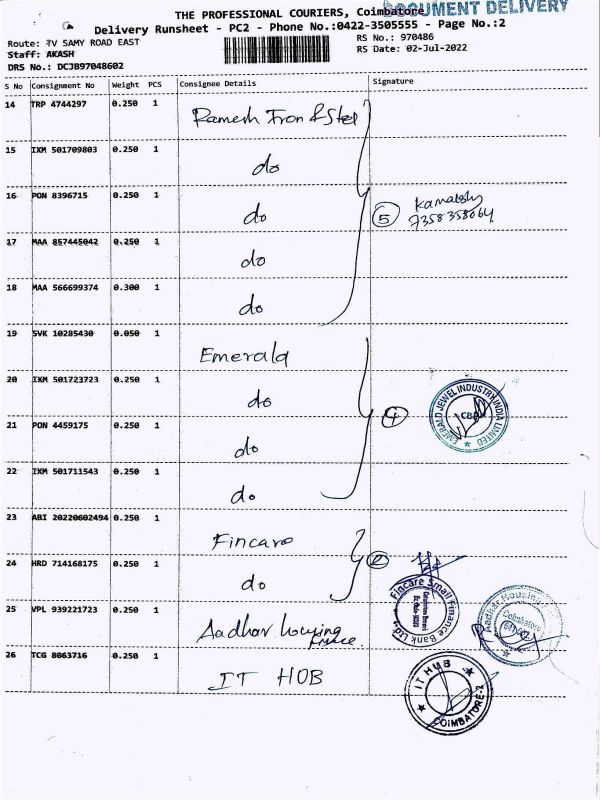 DOCUMENT DELIVERY
THE PROFESSIONAL COURIERS, Coimbatore
Delivery Runsheet - PC2 - Phone No.:0422-3505555 - Page No.:2
Route: TV SAMY ROAD EAST
RS No.: 970486
Staff: AKASH
RS Date: 02-Jul-2022
DRS No.: DCJB97048602
S No Consignment No Weight PCS Consignee Details Signature
14 TRP 4744297 0.250 1 Ramesh Iron & Steel
15 IXM 501709803 0.250 1 do
16 PON 8396715 0.250 1 do 5 Kamatshy
7358358064
17 MAA 857445042 0.250 1 do
18 MAA 566699374 0.300 1 do
19 SVK 10285430 0.050 1 Emerald
20 IXM 501723723 0.250 1 do
21 PON 4459175 0.250 1 do 4 EMERALD JEWEL INDUSTRY INDIA LIMITED CBE
22 IXM 501711543 0.250 1 do
23 ABI 20220602494 0.250 1 Fincare
24 HRD 714168175 0.250 1 do 2 Fincare Small Finance Bank Ltd.
25 VPL 939221723 0.250 1 Aadhar housing Aadhar Housing Coimbatore
26 TCG 8063716 0.250 1 IT HUB IT HUB COIMBATORE-2